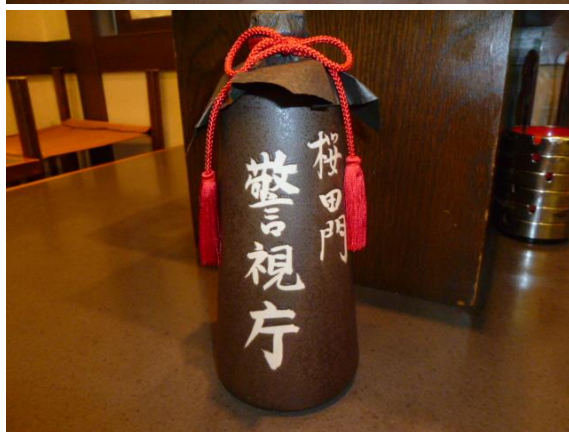 桜田門
警視庁